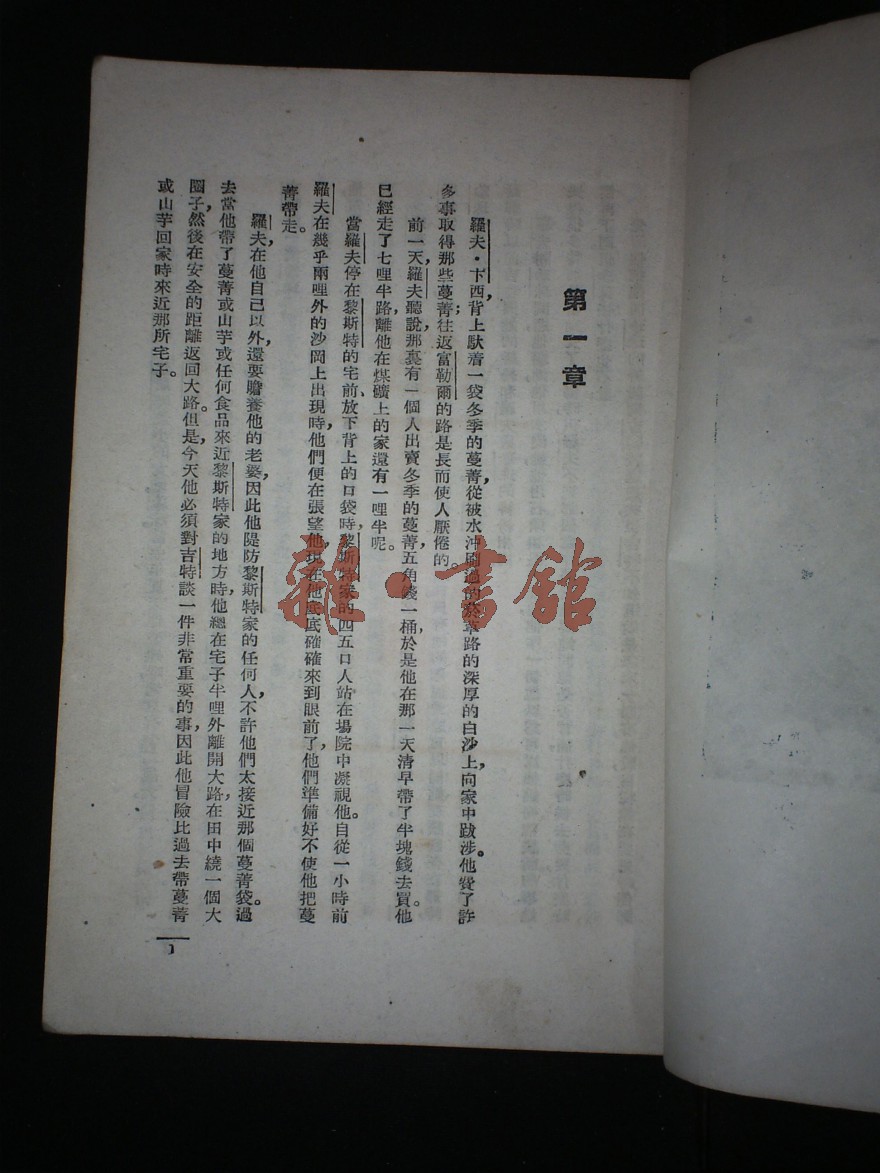 第一章
羅夫·卞西背上馱着一袋冬季的蔓菁，從被水沖刷過的菸草路的深厚的白沙上，向家中跋涉。他費了許
多事取得那些蔓菁；往返富勒爾的路是長而使人厭倦的。
前一天，羅夫聽說，那裏有一個人出賣冬季的蔓菁，五角錢一桶，於是他在那一天清早帶了半塊錢去買。他
已經走了七哩半路，離他在煤礦上的家還有一哩半呢。
當羅夫停在黎斯特的宅前、放下背上的口袋時，黎斯特家的四五口人站在場院中凝視他。自從一小時前
羅夫在幾乎兩哩外的沙岡上出現時，他們便在張望他，現在他底底確確來到眼前了，他們準備好不使他把蔓
菁帶走。
羅夫，在他自己以外，還要贍養他的老婆，因此他隄防黎斯特家的任何人，不許他們太接近那個蔓菁袋。過
去當他帶了蔓菁或山芋或任何食品來近黎斯特家的地方時，他總在宅子半哩外離開大路，在田中繞一個大
圈子，然後在安全的距離返回大路。但是，今天他必須對吉特談一件非常重要的事，因此他冒險比過去帶蔓菁
或山芋回家時來近那所宅子。
1
雜·書館